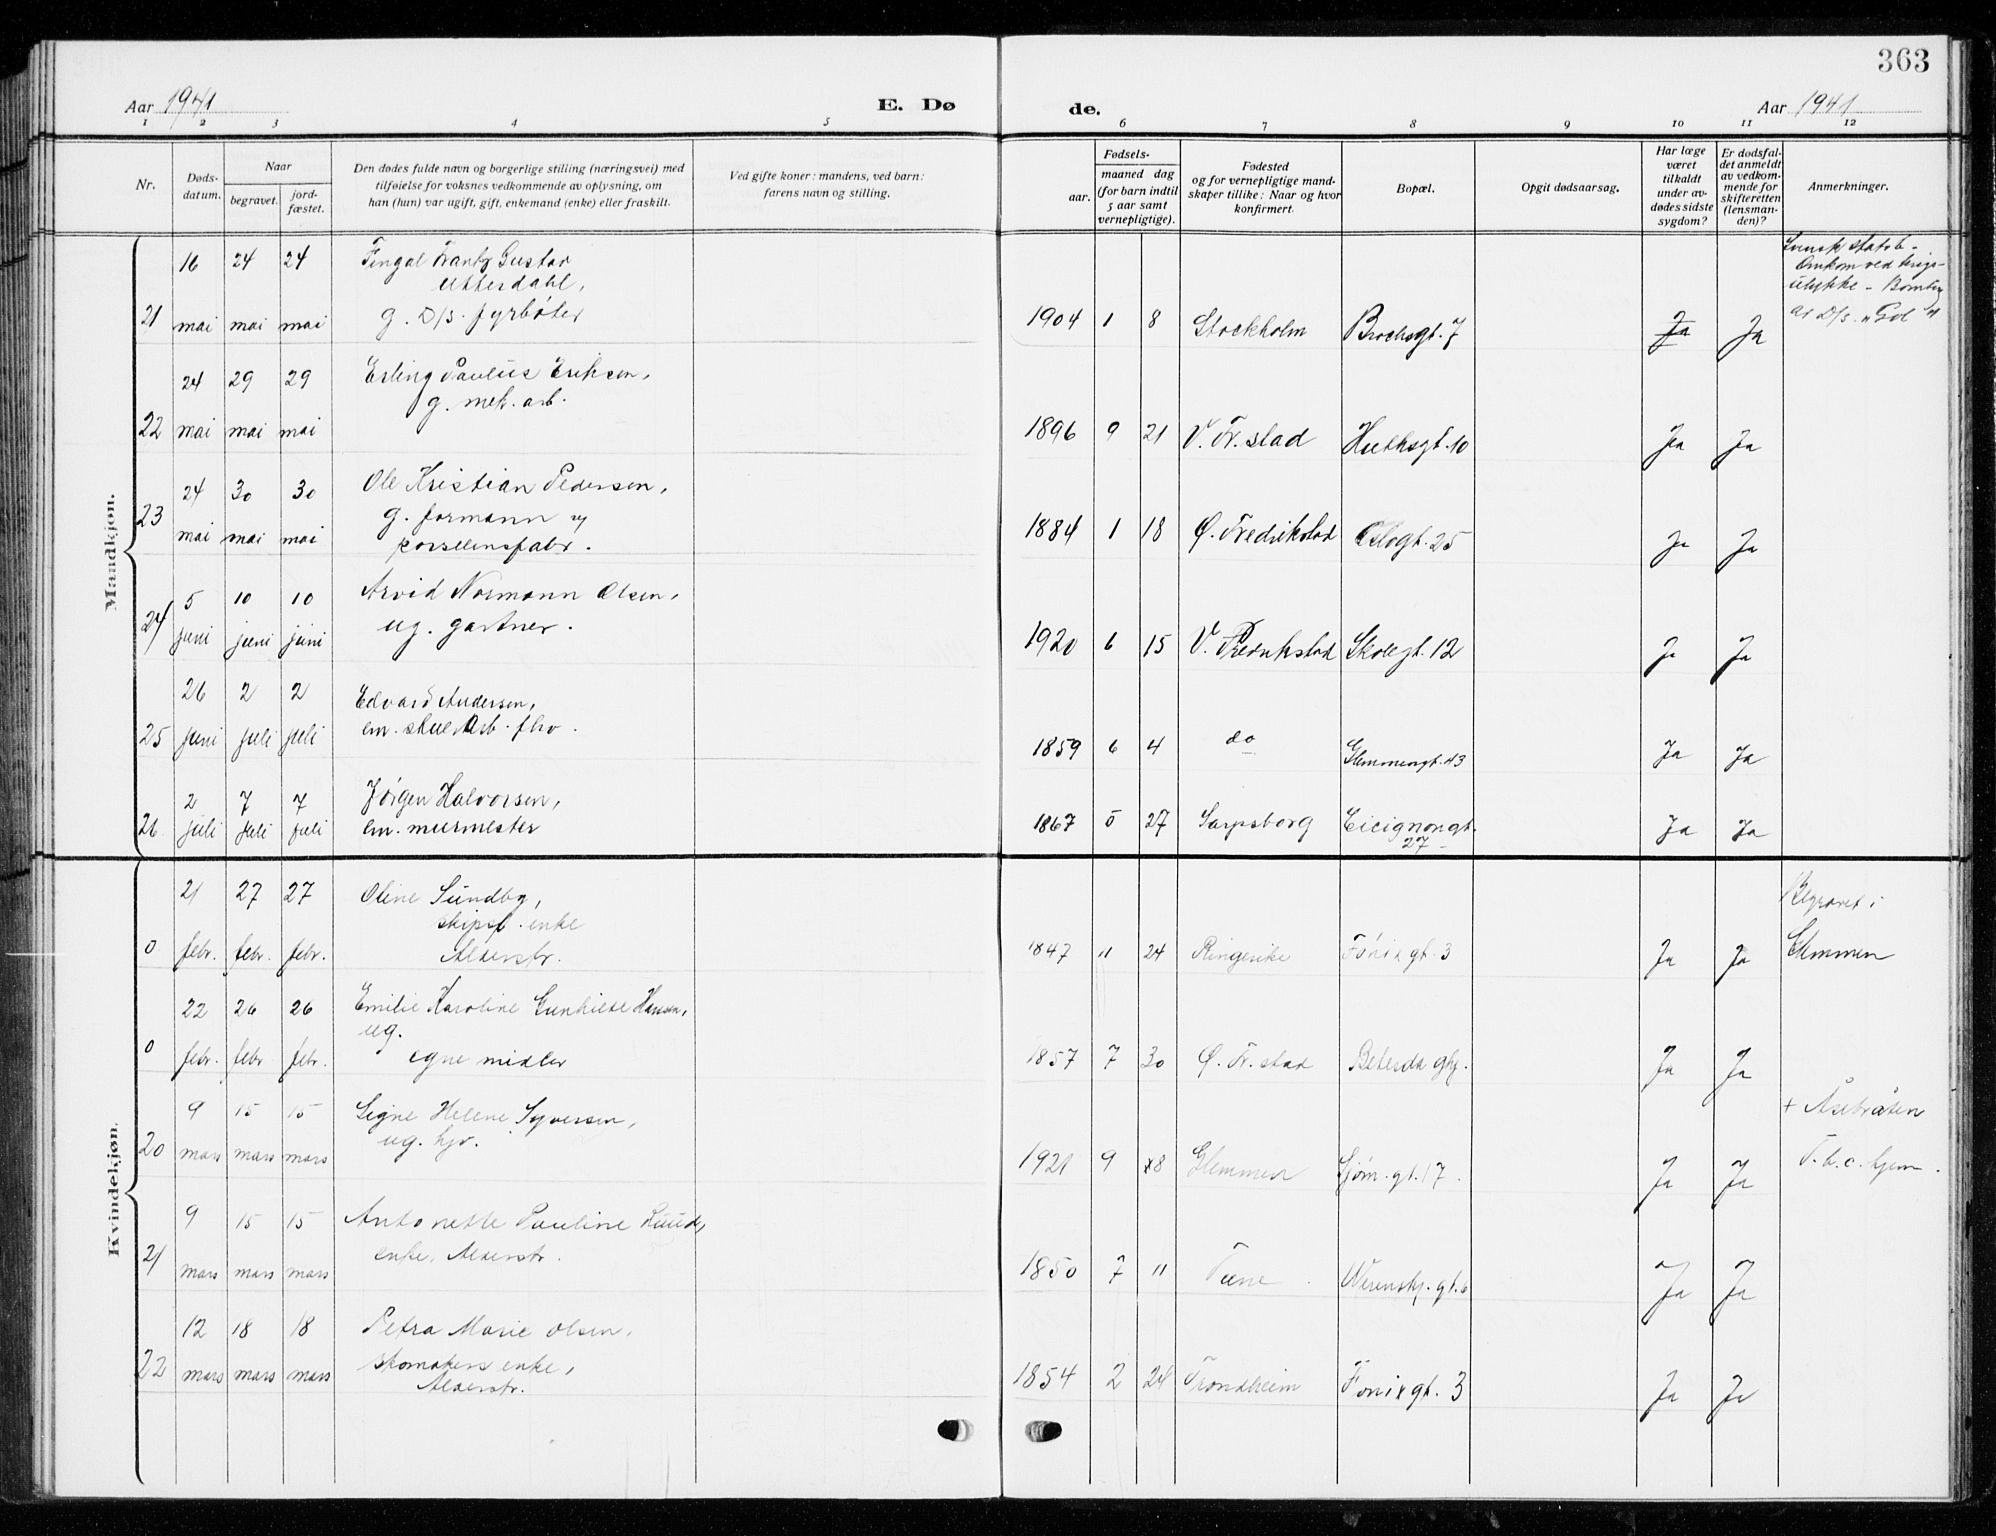 363
Aar 1941
E. Dø
de.
Aar 1941
1 2 3 4 5 6 7 8 9 10 11 12
Nr.
Døds-
datum.
Naar
begravet.
jord-
fæstet.
Den dødes fulde navn og borgerlige stilling (næringsvei) med
tilføielse for voksnes vedkommende av oplysning, om
han (hun) var ugift, gift, enkemand (enke) eller fraskilt.
Ved gifte koner: mandens, ved barn:
farens navn og stilling.
Fødsels-
aar.
maaned dag
(for barn indtil
5 aar samt
vernepligtige).
Fødested
og for vernepligtige mand-
skaper tillike: Naar og hvor
konfirmert.
Bopæl.
Opgit dødsaarsag.
Har læge
været
tilkaldt
under av-
dødes sidste
sygdom?
Er dødsfal-
det anmeldt
av vedkom-
mende for
skifteretten
(lensman-
den)?
Anmerkninger.
Mandkjøn.
21
16 mai
24 mai
24 mai
Fingal Frantz Gustav
Utterdahl,
g. D/S. fyrbøter
1904 1 8
Stockholm
Brochsgt. 7
Ja
Ja
Svensk statsb.
Omkom ved krigs-
ulykke - Bombing
av D/s. "Gol"
22
24 mai
29 mai
29 mai
Erling Paulus Eriksen,
g. mek. arb.
1896 9 21
V. Fr.stad
Huthsgt. 10
Ja
Ja
23
24 mai
30 mai
30 mai
Ole Kristian Pedersen,
g. formann v/
porselensfabr.
1884 1 18
Ø. Fredrikstad
Oslogt. 25
Ja
Ja
24
5 juni
10 juni
10 juni
Arvid Normann Olsen,
ug. gartner.
1920 6 15
V. Fredrikstad
Skolegt. 12
Ja
Ja
25
26 juni
2 juli
2 juli
Edvard Andersen,
em.
1859 6 4
do
Glemmengt. 43
Ja
Ja
26
2 juli
7 juli
7 juli
Jørgen Halvorsen,
em. murmester
1867 5 27
Sarpsborg
Cicignongt.
27
Ja
Ja
Kvindekjøn.
0
21 febr.
27 febr.
27 febr.
Oline Sundby,
skipsf. enke
Alderstr.
1847 11 24
Ringerike
Fønixgt. 3
Ja
Ja
Begravet i
Glemmen
0
22 febr.
26 febr
26 febr.
Emilie Karoline Gunhilde Hansen,
ug.
egne midler
1857 7 30
Ø. Fr.stad
Betesda
Ja
Ja
20
9 mars
15 mars
15 mars
Signe Helene Syversen,
ug. hjv.
1921 9 8
Glemmen
Sjøm.gt. 17.
Ja
Ja
+ Åsebråten
T.b.c. hjem.
21
9 mars
15 mars
15 mars
Antonette Pauline Ruud,
enke, Alderstr.
1850 7 11
Tune
Werenskj.gt. 6
Ja
Ja
22
12 mars
18 mars
18 mars
Petra Marie Olsen,
skomakers enke,
Alderstr.
1854 2 24
Trondheim
Fønixgt. 3
Ja
Ja